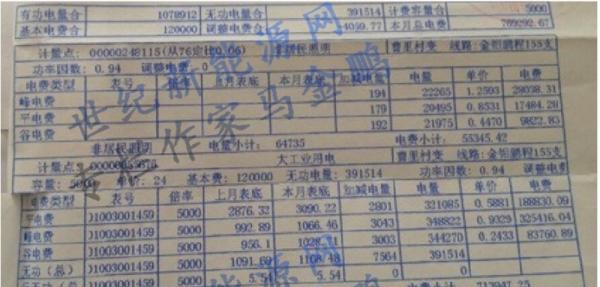 有功电量合 1078912 无功电量合 391514 计费容量合 5000
基本电费合 120000 调整电费合 4059.77 本月总电费 769292.67
计量点：00000248115(从76定比0.06) 非居民照明 曹里村变 线路：金钼鹏程155支
功率因数：0.94 调整电费：0
电费类型 表号 倍率 上月表底 本月表底 加减电量 电量 单价 电费
峰电费 194 22265 1.2593 28038.31
平电费 179 20495 0.8531 17484.28
谷电费 192 21975 0.4470 9822.83
非居民照明 电量小计：64735 电费小计：55345.42
计量点： 大工业用电 曹里村变 线路：金钼鹏程155支
容量：5000 单价：24 基本费：120000 无功电量：391514 功率因数：0.94 调整电费
电费类型 表号 倍率 上月表底 本月表底 加减电量 电量 单价 电费
平电费 01003001459 5000 2876.32 3090.22 2801 321085 0.5881 188830.09
峰电费 01003001459 5000 992.89 1066.46 3043 348822 0.9329 325416.04
谷电费 01003001459 5000 956.1 3003 344270 0.2433 83760.89
无功（总） 01003001459 5000 1108.48 7564 391514
01003001459 5000 5.54 5.54 0 0
713947.25
世纪新能源网
专栏作家马金鹏
能源网
鹏